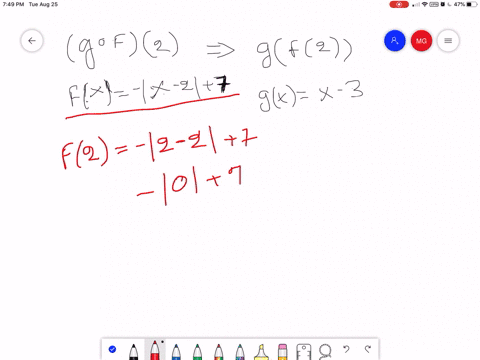 7:49 PM Tue Aug 25
47%
MG
(g∘F)(2) ⇒ g(f(2))
F(x)=-|x-2|+7
g(x)= x-3
F(2)=-|2-2|+7
-|0|+7